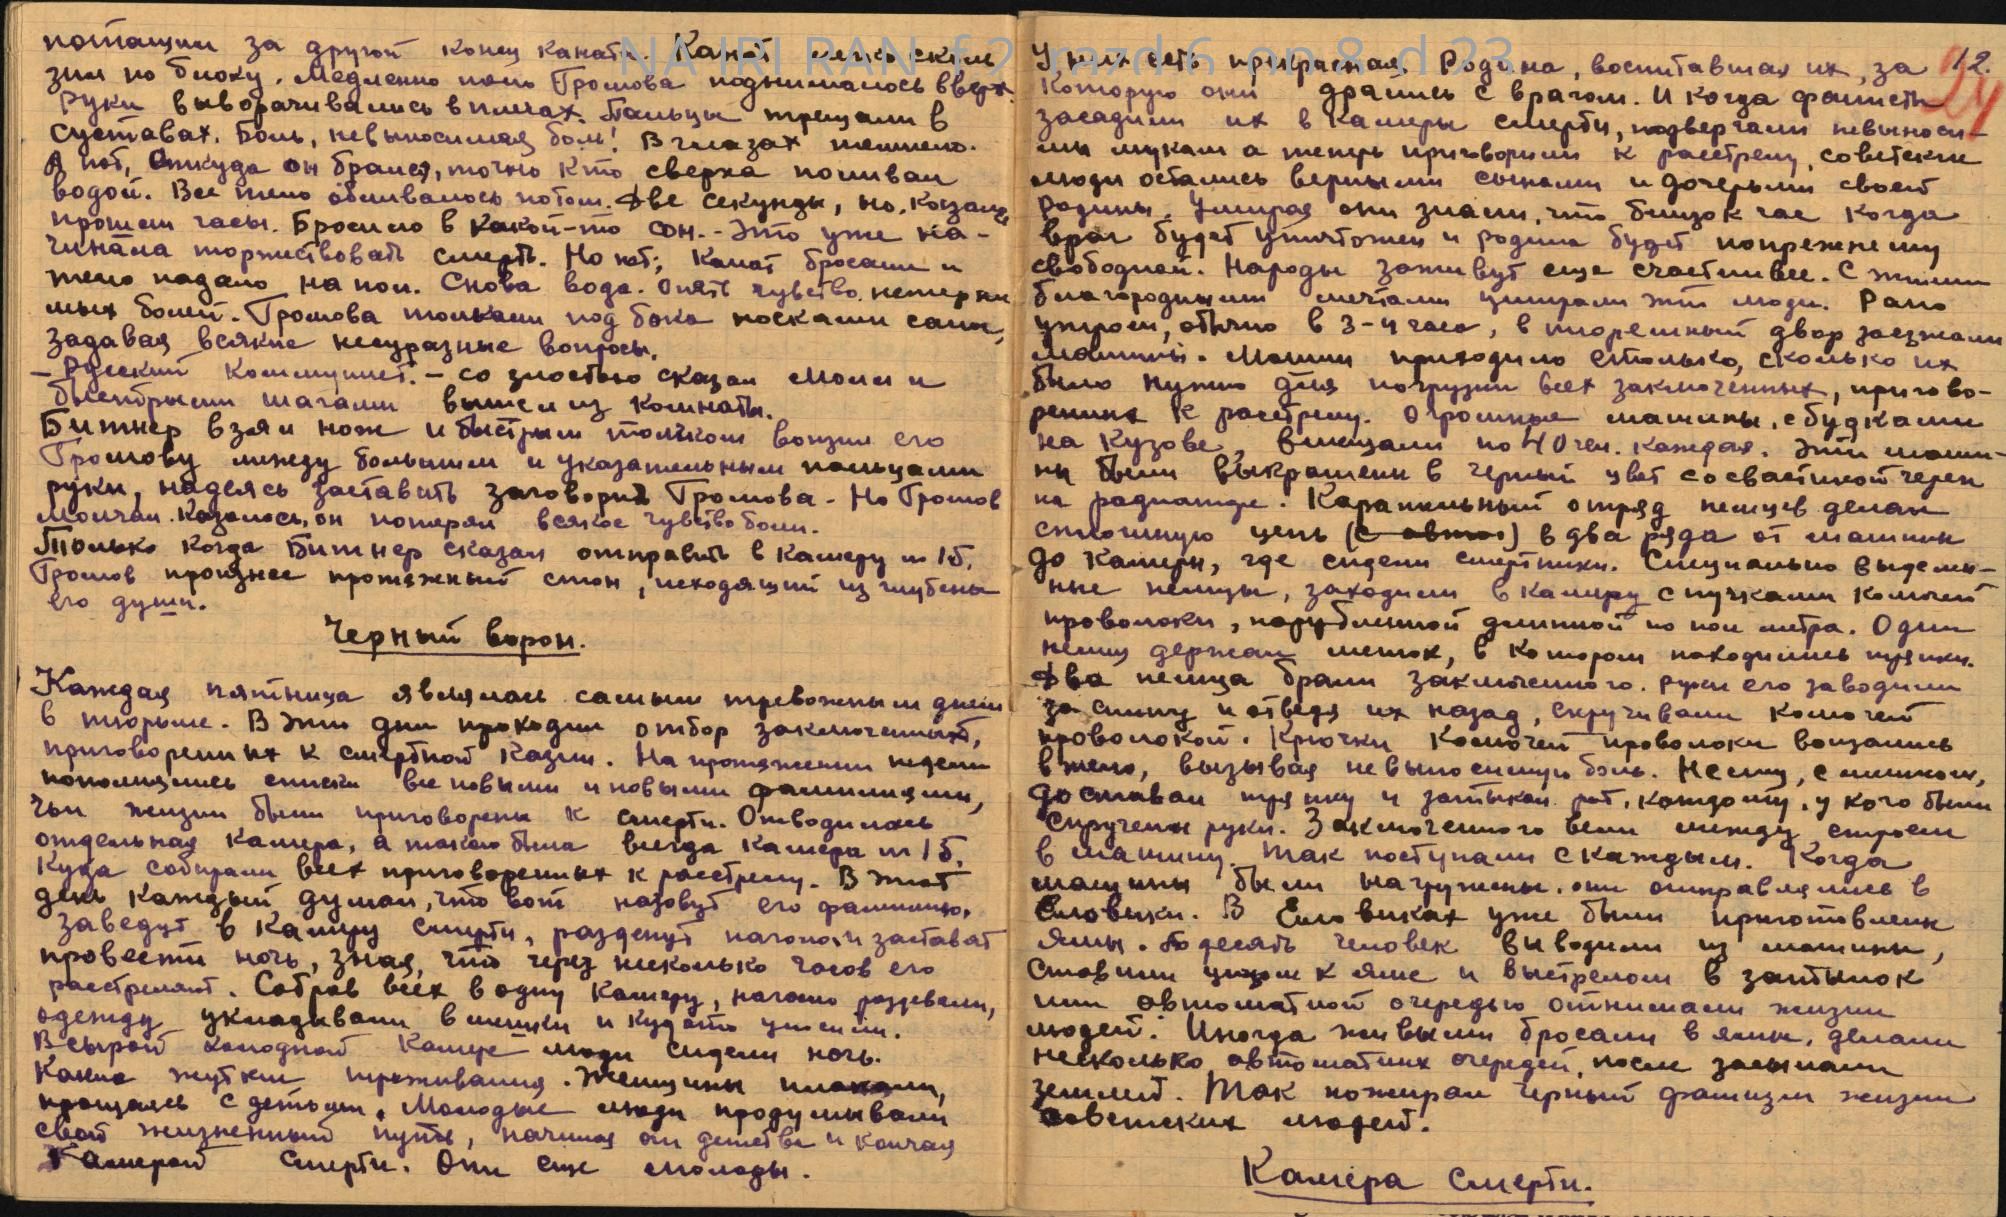 NA IRI RAN f 2 razd 6 op 8 d 23
потащили за другой конец каната. Канат легко сколь
зил по блоку. Медленно тело Громова поднималось вверх.
Руки выворачивались в плечах. Пальцы трещали в
суставах. Боль, невыносимая боль! В глазах темнело.
А пот, откуда он брался, точно кто сверха поливал
водой. Все тело обливалось потом. Две секунды, но, казалось
прошли часы. Бросило в какой-то сон. - Это уже на-
чинала торжествовать смерть. Но нет; канат бросали и
тело падало на пол. Снова вода. Опять чувство нетерпи
мых болей. Громова толкали под бока носками сапог,
задавая всякие несуразные вопросы.
- Русский коммунист. - со злостью сказал Молл и
быстрыми шагами вышел из комнаты.
Битнер взял нож и быстрым толчком вонзил его
Громову между большим и указательным пальцами
руки, надеясь заставить заговорить Громова - Но Громов
молчал. Казалось, он потерял всякое чувство боли.
Только когда Битнер сказал отправить в камеру № 15,
Громов произнес протяжный стон, исходящий из глубены
его души.
Черный ворон.
Каждая пятница являлась самым тревожным днем
в тюрьме. В эти дни проходил отбор заключенных,
приговоренных к смертной казни. На протяжении недели
пополнялись списки все новыми и новыми фамилиями,
чьи жизни были приговорены к смерти. Отводилась
отдельная камера, а такою была всегда камера № 15,
куда собирали всех приговоренных к расстрелу. В этот
день каждый думал, что вот назовут его фамилию,
заведут в камеру смерти, разденут наголо и заставят
провести ночь, зная, что через несколько часов его
расстреляют. Собрав всех в одну камеру, наголо раздевали,
одежду укладывали в мешки и куда то уносили.
В сырой холодной камере люди сидели ночь.
Какие жуткие переживания. Женщины плакали,
прощаясь с детьми. Молодые люди продумывали
свой жизненный путь, начиная от детства и кончая
камерой смерти. Они еще молоды.
12.
24
У них есть прекрасная Родина, воспитавшая их, за
которую они дрались с врагом. И когда фашисты
засадили их в камеры смерти, подвергали невыноси-
мым мукам а теперь приговорили к расстрелу, советские
люди остались верными сынами и дочерьми своей
родины. Умирая они знали, что близок час когда
враг будет уничтожен и родина будет попрежнему
свободной. Народы заживут еще счастливее. С этими
благородными мечтами умирали эти люди. Рано
утром, обычно в 3-4 часа, в тюремный двор заезжали
машины. Машин приходило столько, сколько их
было нужно для погрузки всех заключенных, пригово-
ренных к расстрелу. Огромные машины, с будками
на кузове, вмещали по 40 чел. каждая. Эти маши-
ны были выкрашены в черный цвет со свастикой череп
на радиаторе. Карательный отряд немцев делал
сплошную цепь (с авто) в два ряда от машины
до камеры, где сидели смертники. Специально выделен-
ные немцы, заходили в камеру с пучками колючей
проволоки, нарубленной длинной по пол метра. Один
немец держал мешок, в котором находились тряпки.
Два немца брали заключенного. Руки его заводили
за спину и отведя их назад, скручивали колючей
проволокой. Крючки колючей проволоки вонзались
в тело, вызывая невыносимую боль. Немец, с мешком,
доставал тряпку и затыкал рот, каждому, у кого были
скручены руки. Заключенного вели между строем
в машину. Так поступали с каждым. Когда
машины были нагружены, они отправлялись в
Еловики. В Еловиках уже были приготовлены
ямы. По десять человек выводили из машины,
ставили лицом к яме и выстрелом в затылок
или автоматной очередью отнимали жизни
людей. Иногда живыми бросали в ямы, делали
несколько автоматных очередей, после засыпали
землей. Так пожирал черный фашизм жизни
советских людей.
Камера смерти.